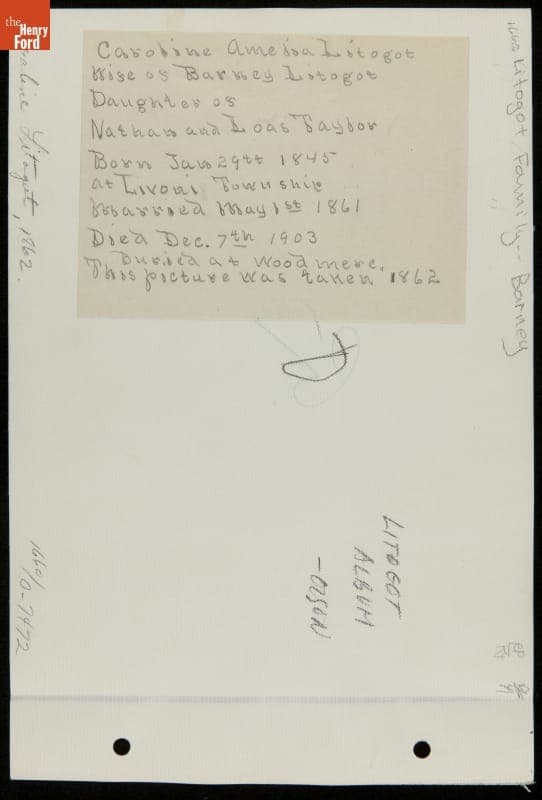 the
Henry
Ford
Caroline Ameisa Litogot
Wise os Barney Litogot
Daughter os
Nathan and Loas Taylor
Born Jan 29tt 1845
at Livoni Township
Married May 1st 1861
Died Dec. 7th 1903
Buried at Woodmere.
This picture was taken 1862
Litogot Family-- Barney
Litogot, 1862.
1660/
0-7472
LITOGOT
ALBUM
-OLSON